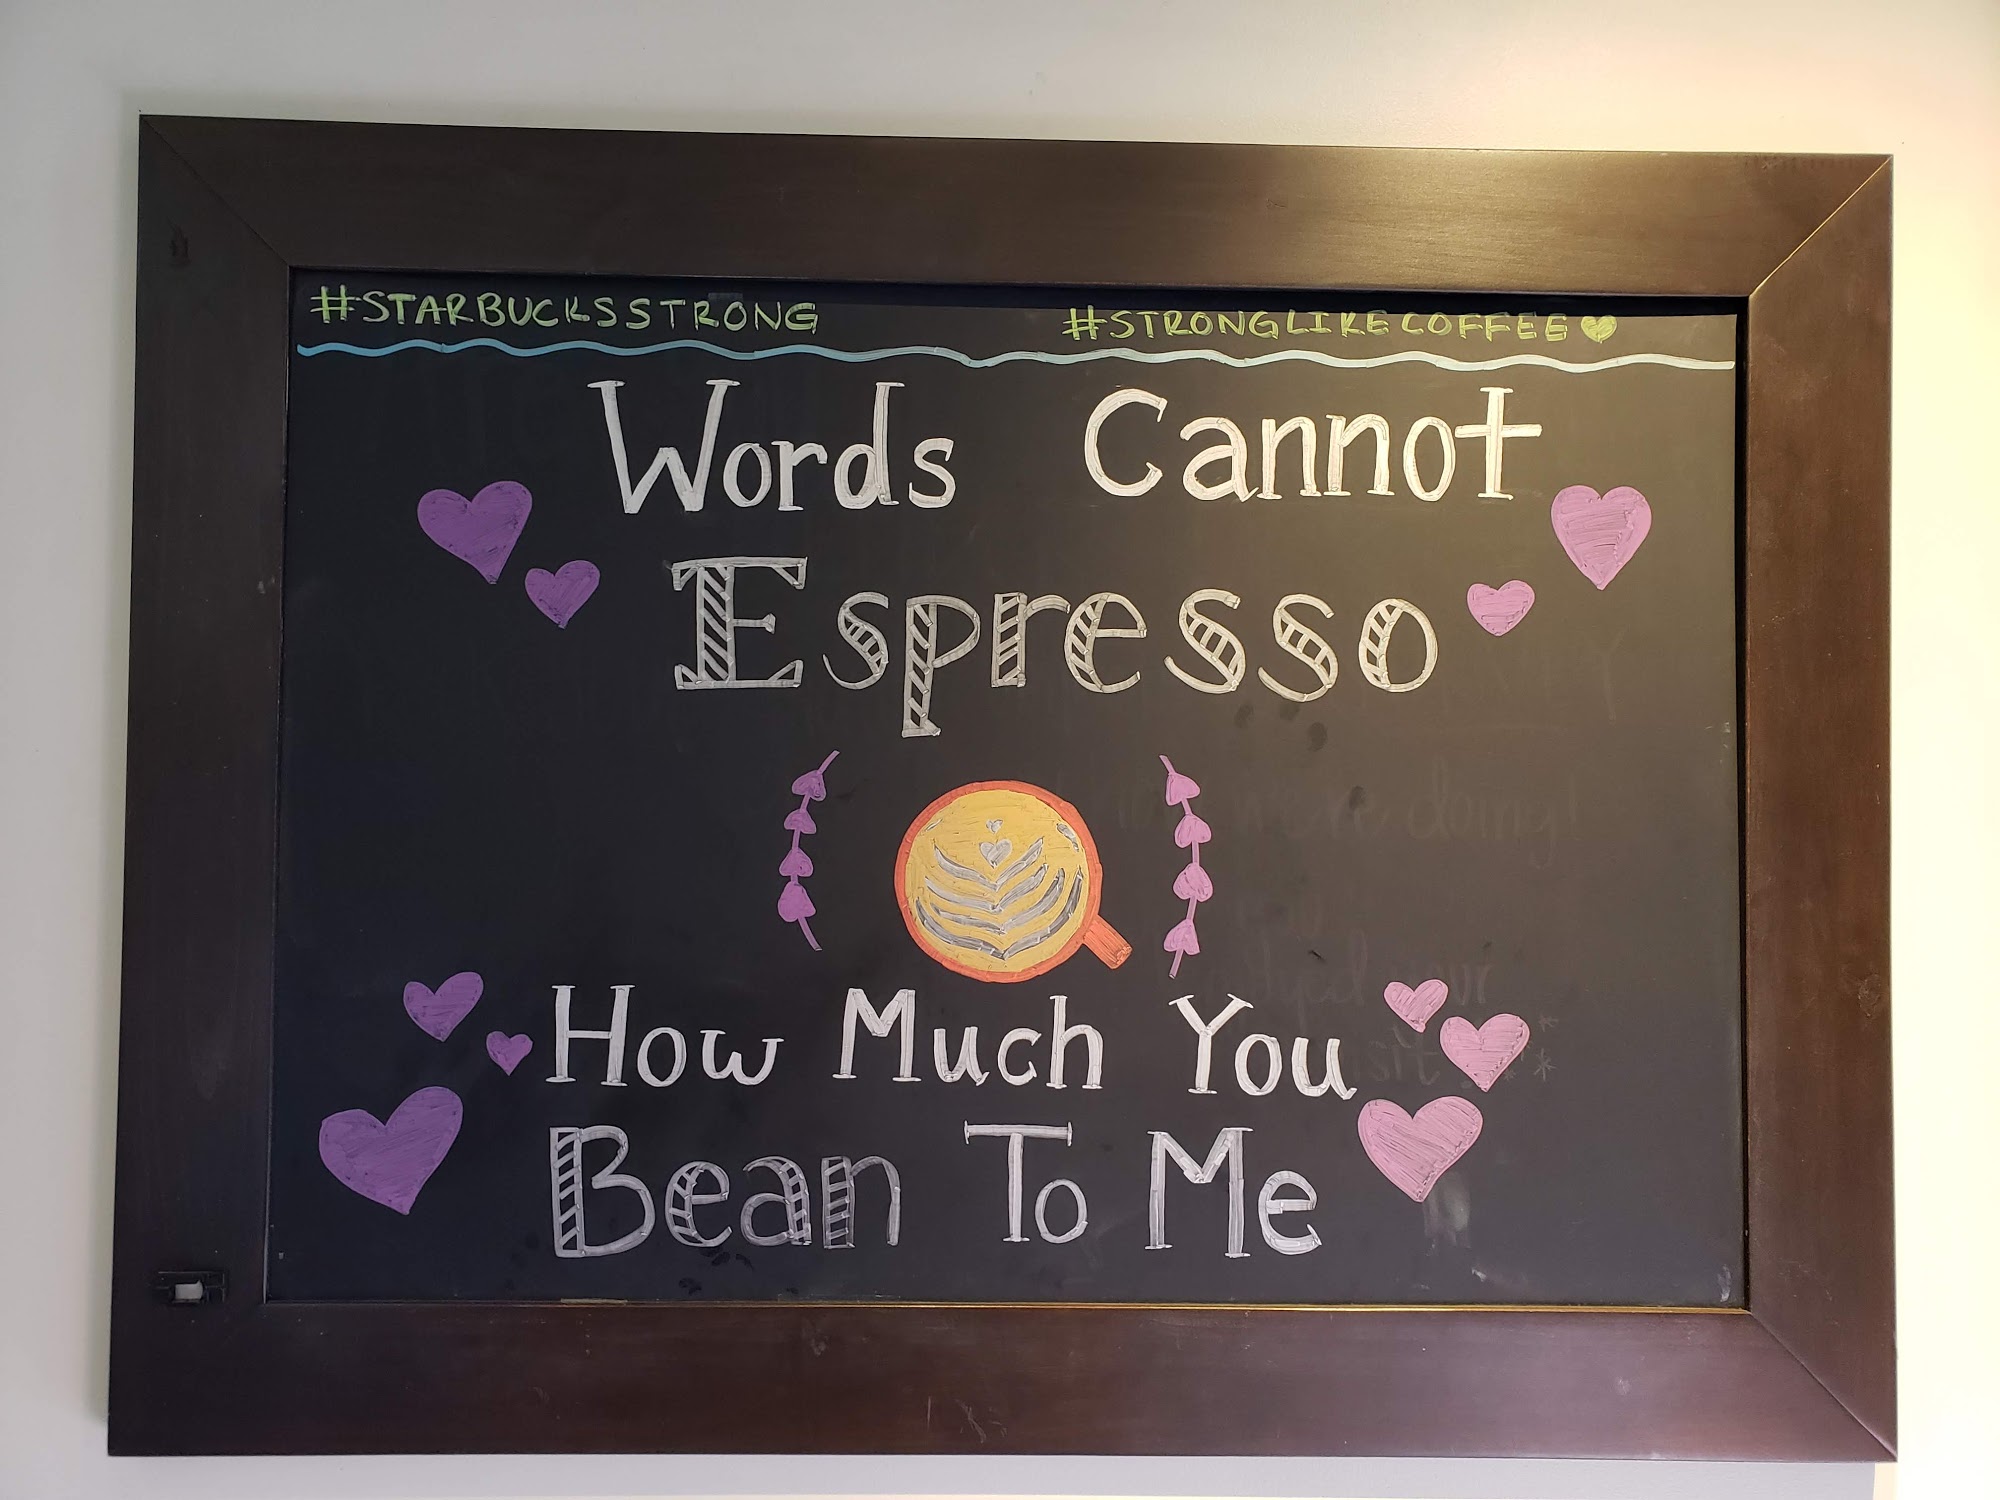 #STARBUCKSSTRONG #STRONGLIKECOFFEE
Words Cannot
Espresso
How Much You
Bean To Me
doing!